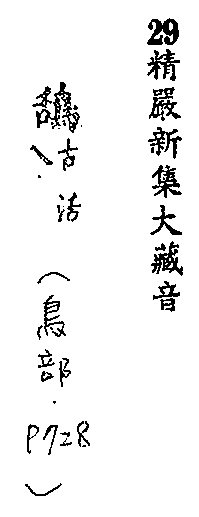 29精嚴新集大藏音
古活（鳥部．P728）